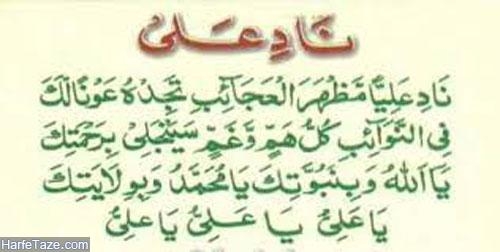 نَادِ عَـلـىٰ
نَادِ عَلِيًّا مَظْهَرَ الْعَجَآئِبِ تَجِدْهُ عَوْنًالَكَ
فِى النَّوَآئِبِ كُلُّ هَمٍّ وَّغَمٍّ سَيَنْجَلِىْ بِرَحْمَتِكَ
يَا اَللهُ وَبِنُبُوَّتِكَ يَا مُحَمَّدُ وَبِوِلَايَتِكَ
يَا عَلِىُّ يَا عَلِىُّ يَا عَلِىُّ
HarfeTaze.com